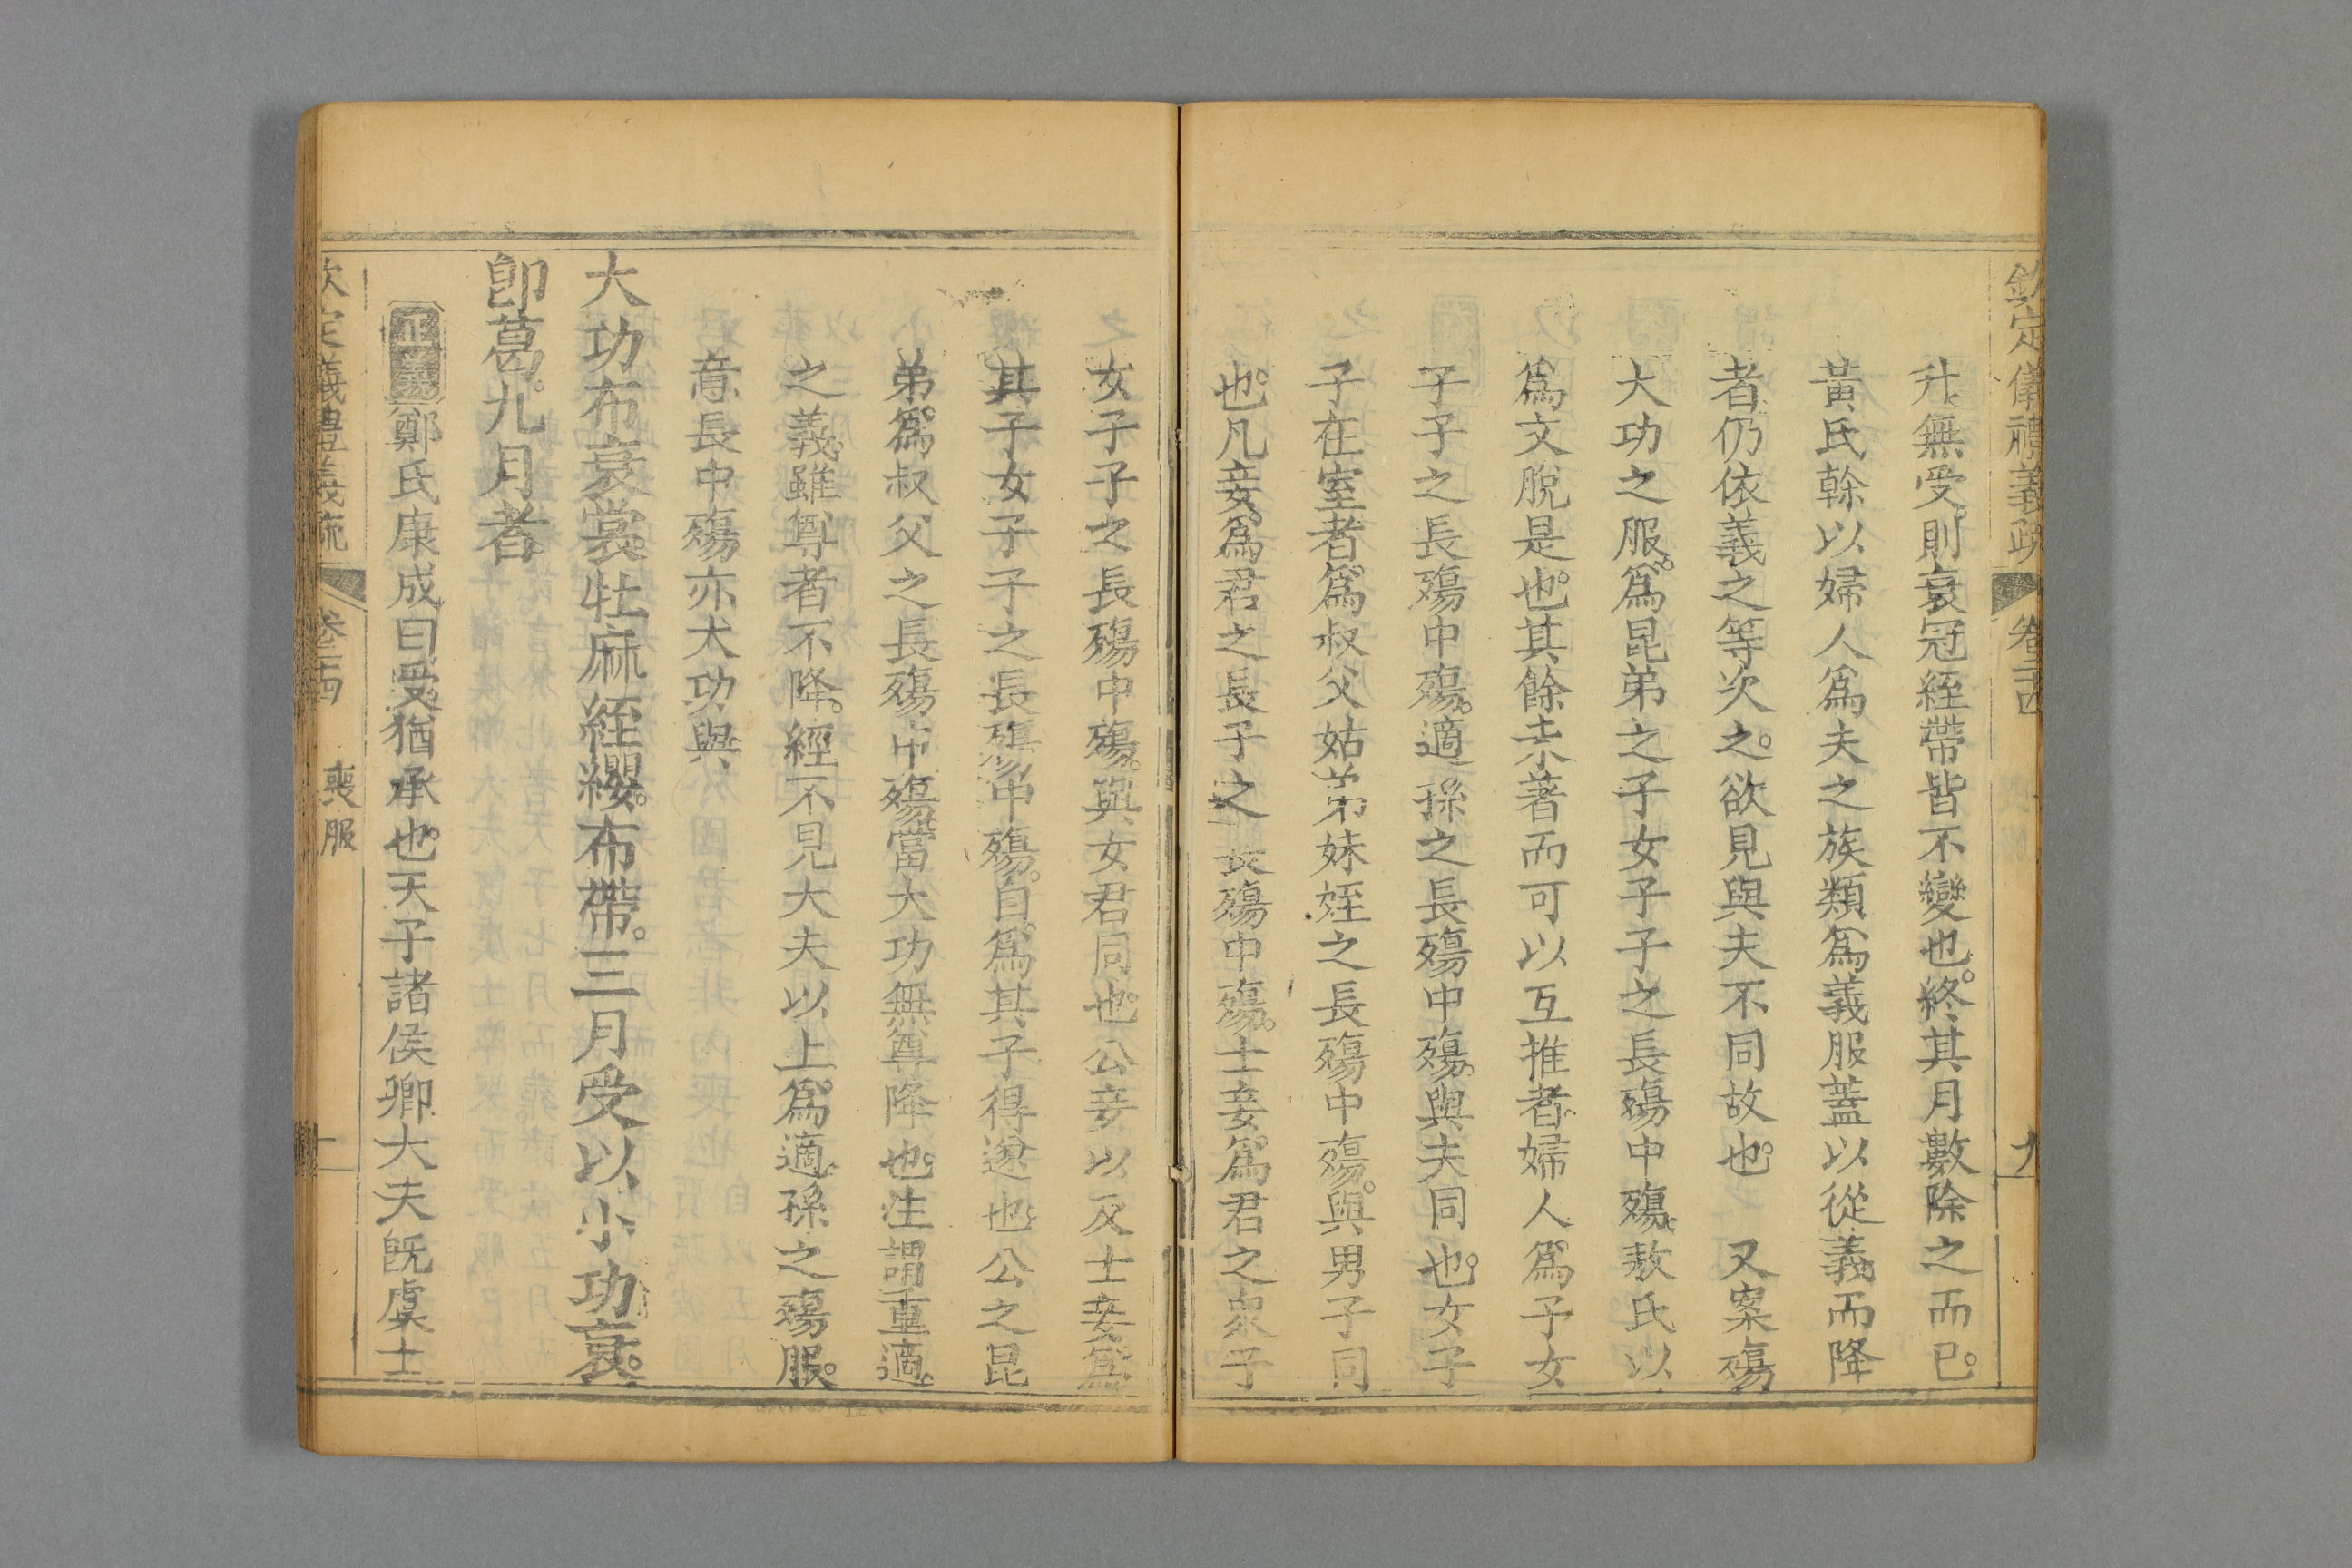 欽定儀禮義疏 卷二十四 九
升無受。則衰冠絰帶皆不變也。終其月數除之而已。
黃氏榦以婦人爲夫之族類爲義服蓋以從義而降
者仍依義之等次之。欲見與夫不同故也。 又案殤
大功之服。爲昆弟之子女子子之長殤中殤。敖氏以
爲文脫是也。其餘未著而可以互推者。婦人爲子女
子子之長殤中殤。適孫之長殤中殤。與夫同也。女子
子在室者。爲叔父姑弟妹姪之長殤中殤。與男子同
也。凡妾。爲君之長子之長殤中殤。士妾。爲君之衆子
女子子之長殤中殤。與女君同也。公妾以及士妾爲
其子女子子之長殤中殤。自爲其子得遂也。公之昆
弟。爲叔父之長殤中殤。當大功無尊降也。注謂重適。
之義。雖尊者不降。經不見大夫以上。爲適孫之殤服。
意長中殤亦大功與
大功布衰裳。牡麻絰纓。布帶。三月受以小功衰。
卽葛。九月者
正義鄭氏康成曰受猶承也。天子諸侯卿大夫旣虞士
欽定儀禮義疏 卷二十四 喪服 十